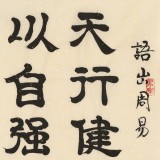 天行健
以自强
語出周易